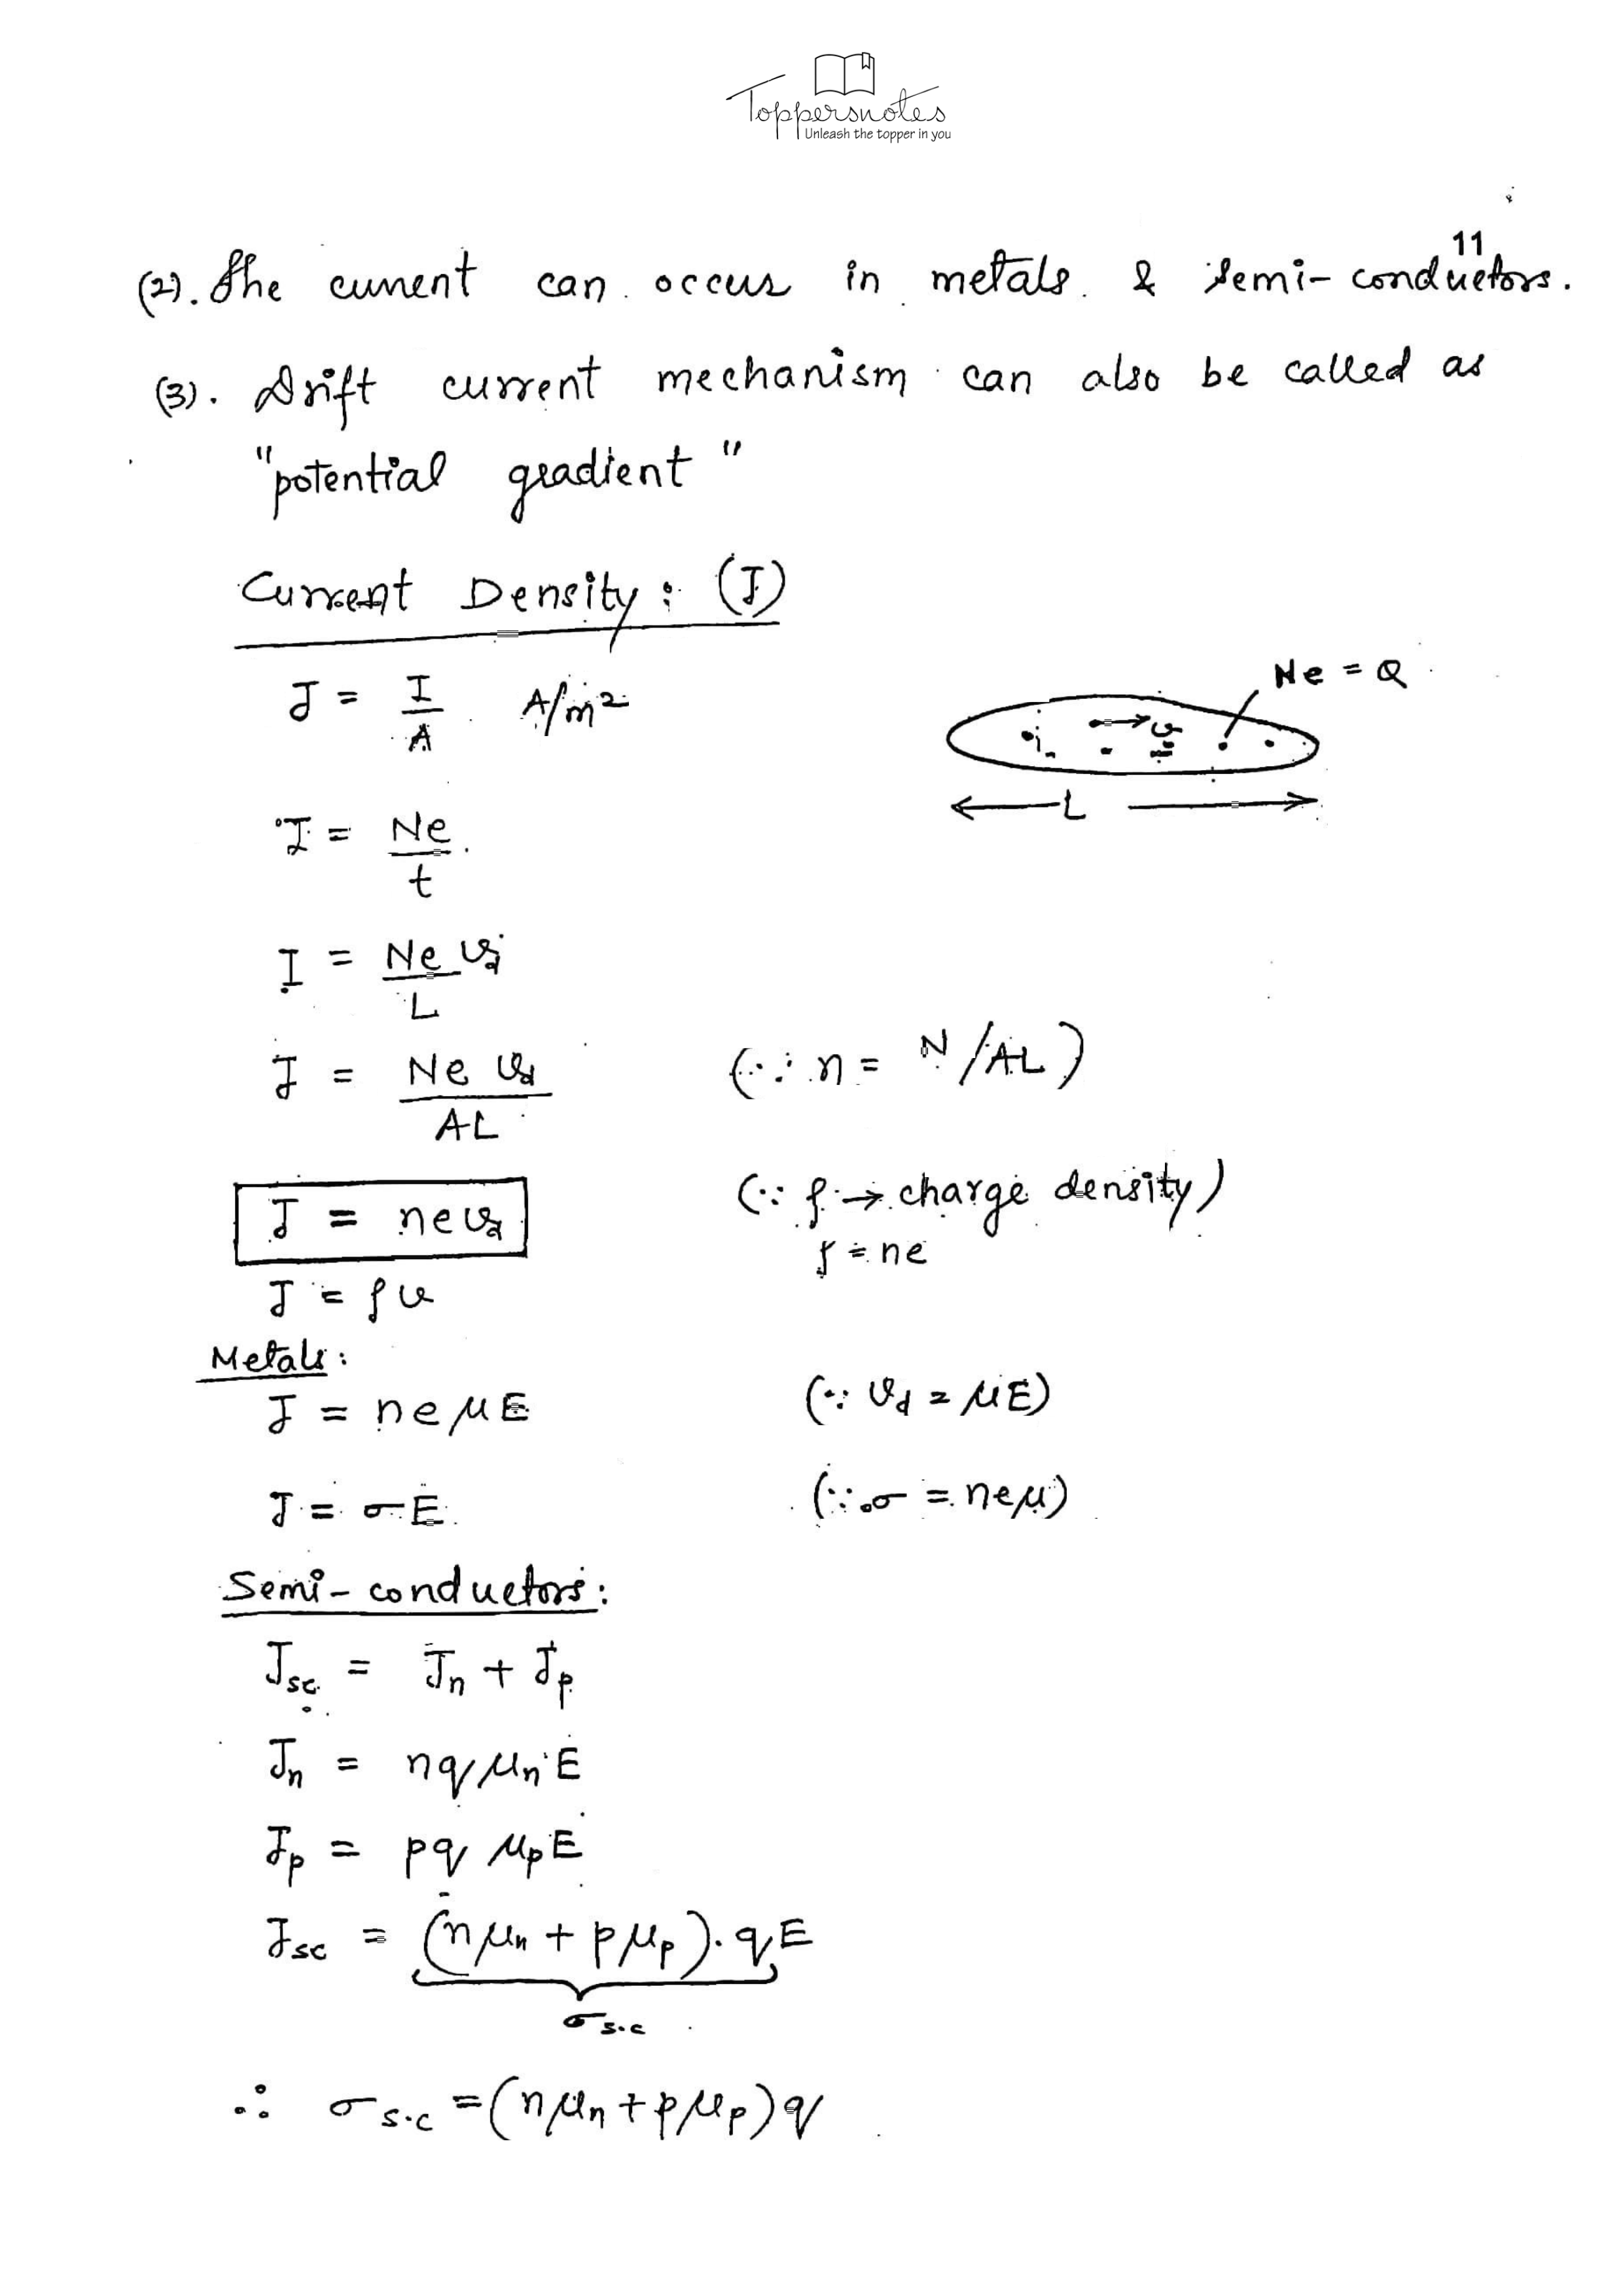 Toppersnotes
Unleash the topper in you
11
(2). The current can occur in metals & semi-conductors.
(3). Drift current mechanism can also be called as
"potential gradient"
Current Density: (J)
J = I/A A/m²
Ne = Q
v
L
I = Ne/t
I = Ne v_d/L
J = Ne v_d/AL (∵ n = N/AL)
J = nev_d (∵ ρ → charge density)
ρ = ne
J = ρv
Metals:
J = neμE (∵ v_d = μE)
J = σE (∵ σ = neμ)
Semi-conductors:
J_sc = J_n + J_p
J_n = nqμ_nE
J_p = pqμ_pE
J_sc = (nμ_n + pμ_p).qE
σ_s.c
∴ σ_s.c = (nμ_n + pμ_p)q